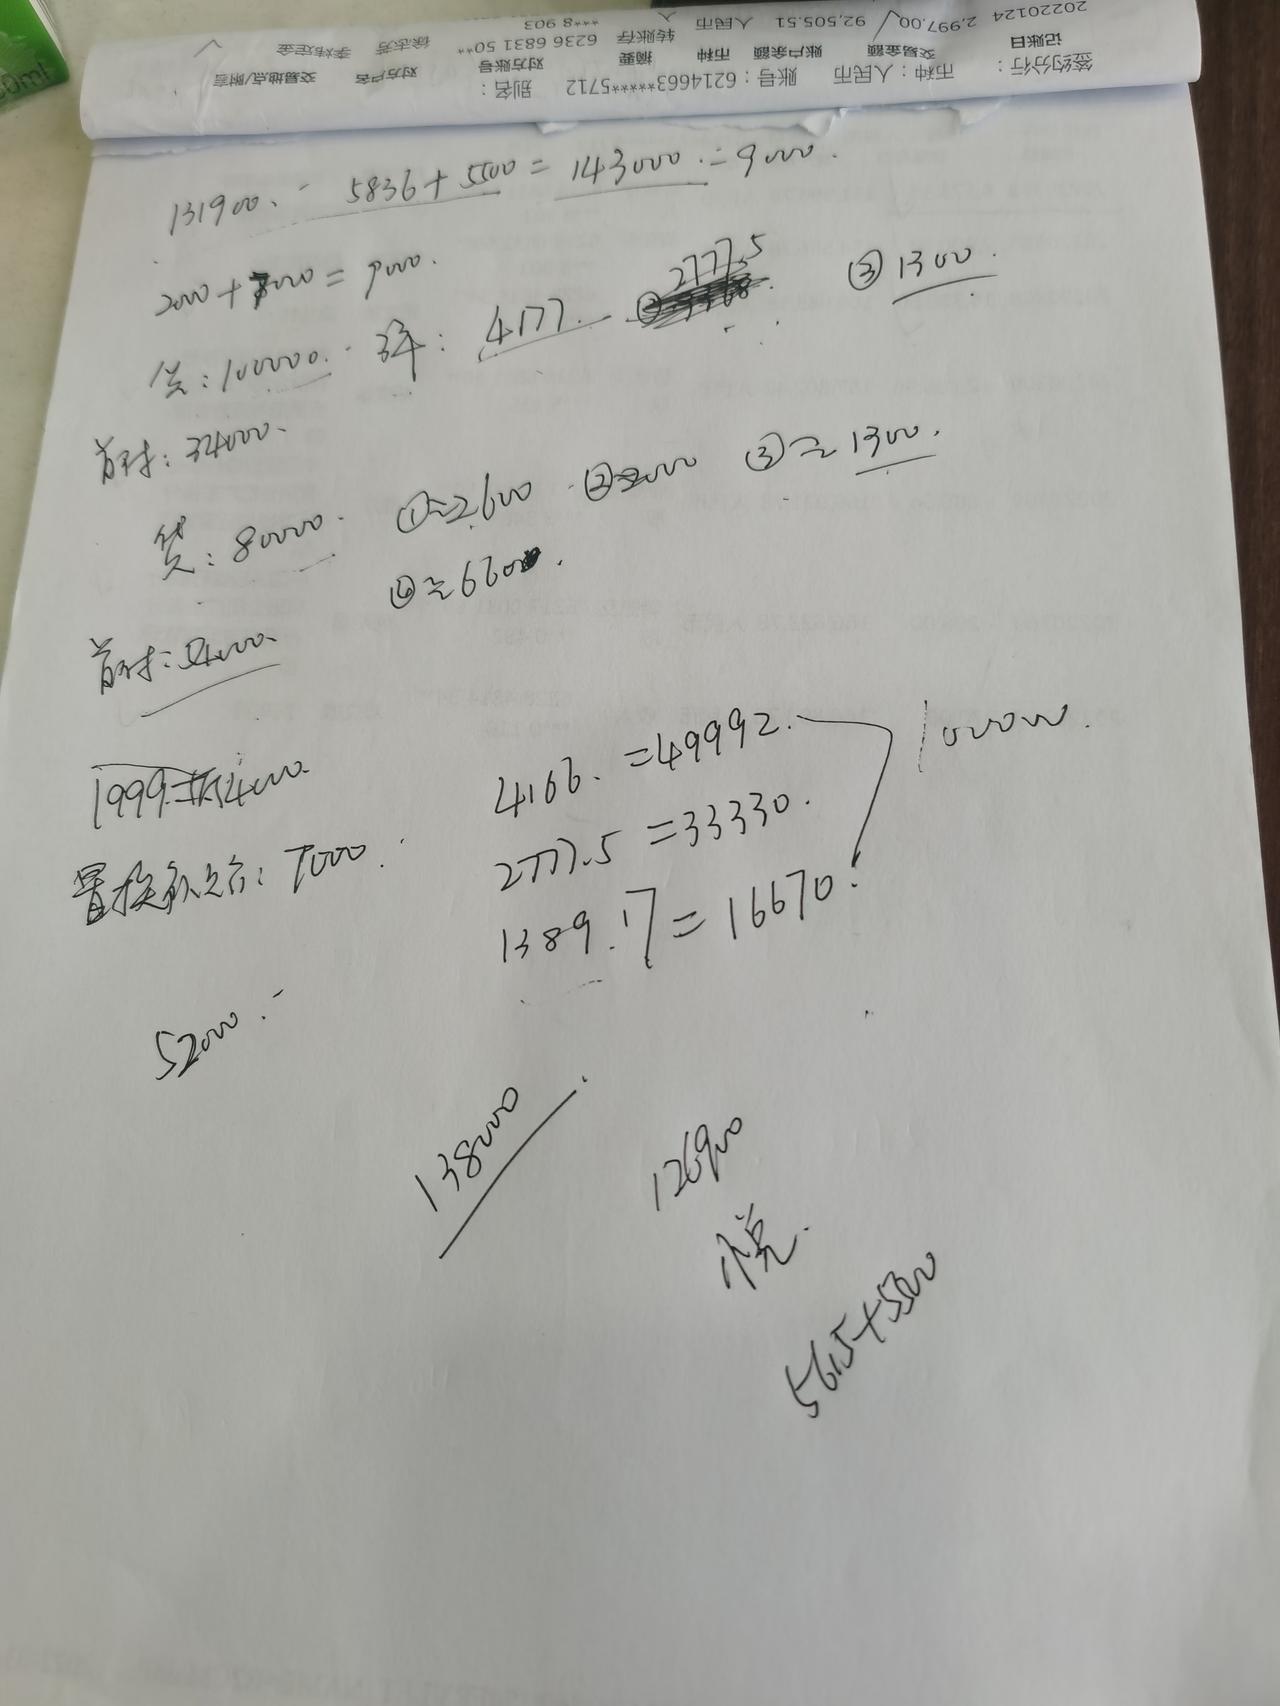 签约分行： 币种：人民币 账号：6214663*****5712 别名：
记账日 交易金额 账户余额 币种 摘要 对方账号 对方户名 交易地点/附言
20220124 2,997.00 92,505.51 人民币 转账存入 6236 6831 50*****8 903 徐志芳 李炜定金
131900. 5836+5500=143000.-9000.
2000+7000=9000.
贷:100000. 3年: 4177. 2777.5 ③1300.
首付:34000.
贷:80000. ①≈2600 ②≈2000 ③≈1300.
④≈6600.
首付:54000.
1999 54000
4166.=49992. 100000.
置换 7000. 2777.5=33330.
1389.17=16670.
52000.-
138000
126900
悦.
5615+5500